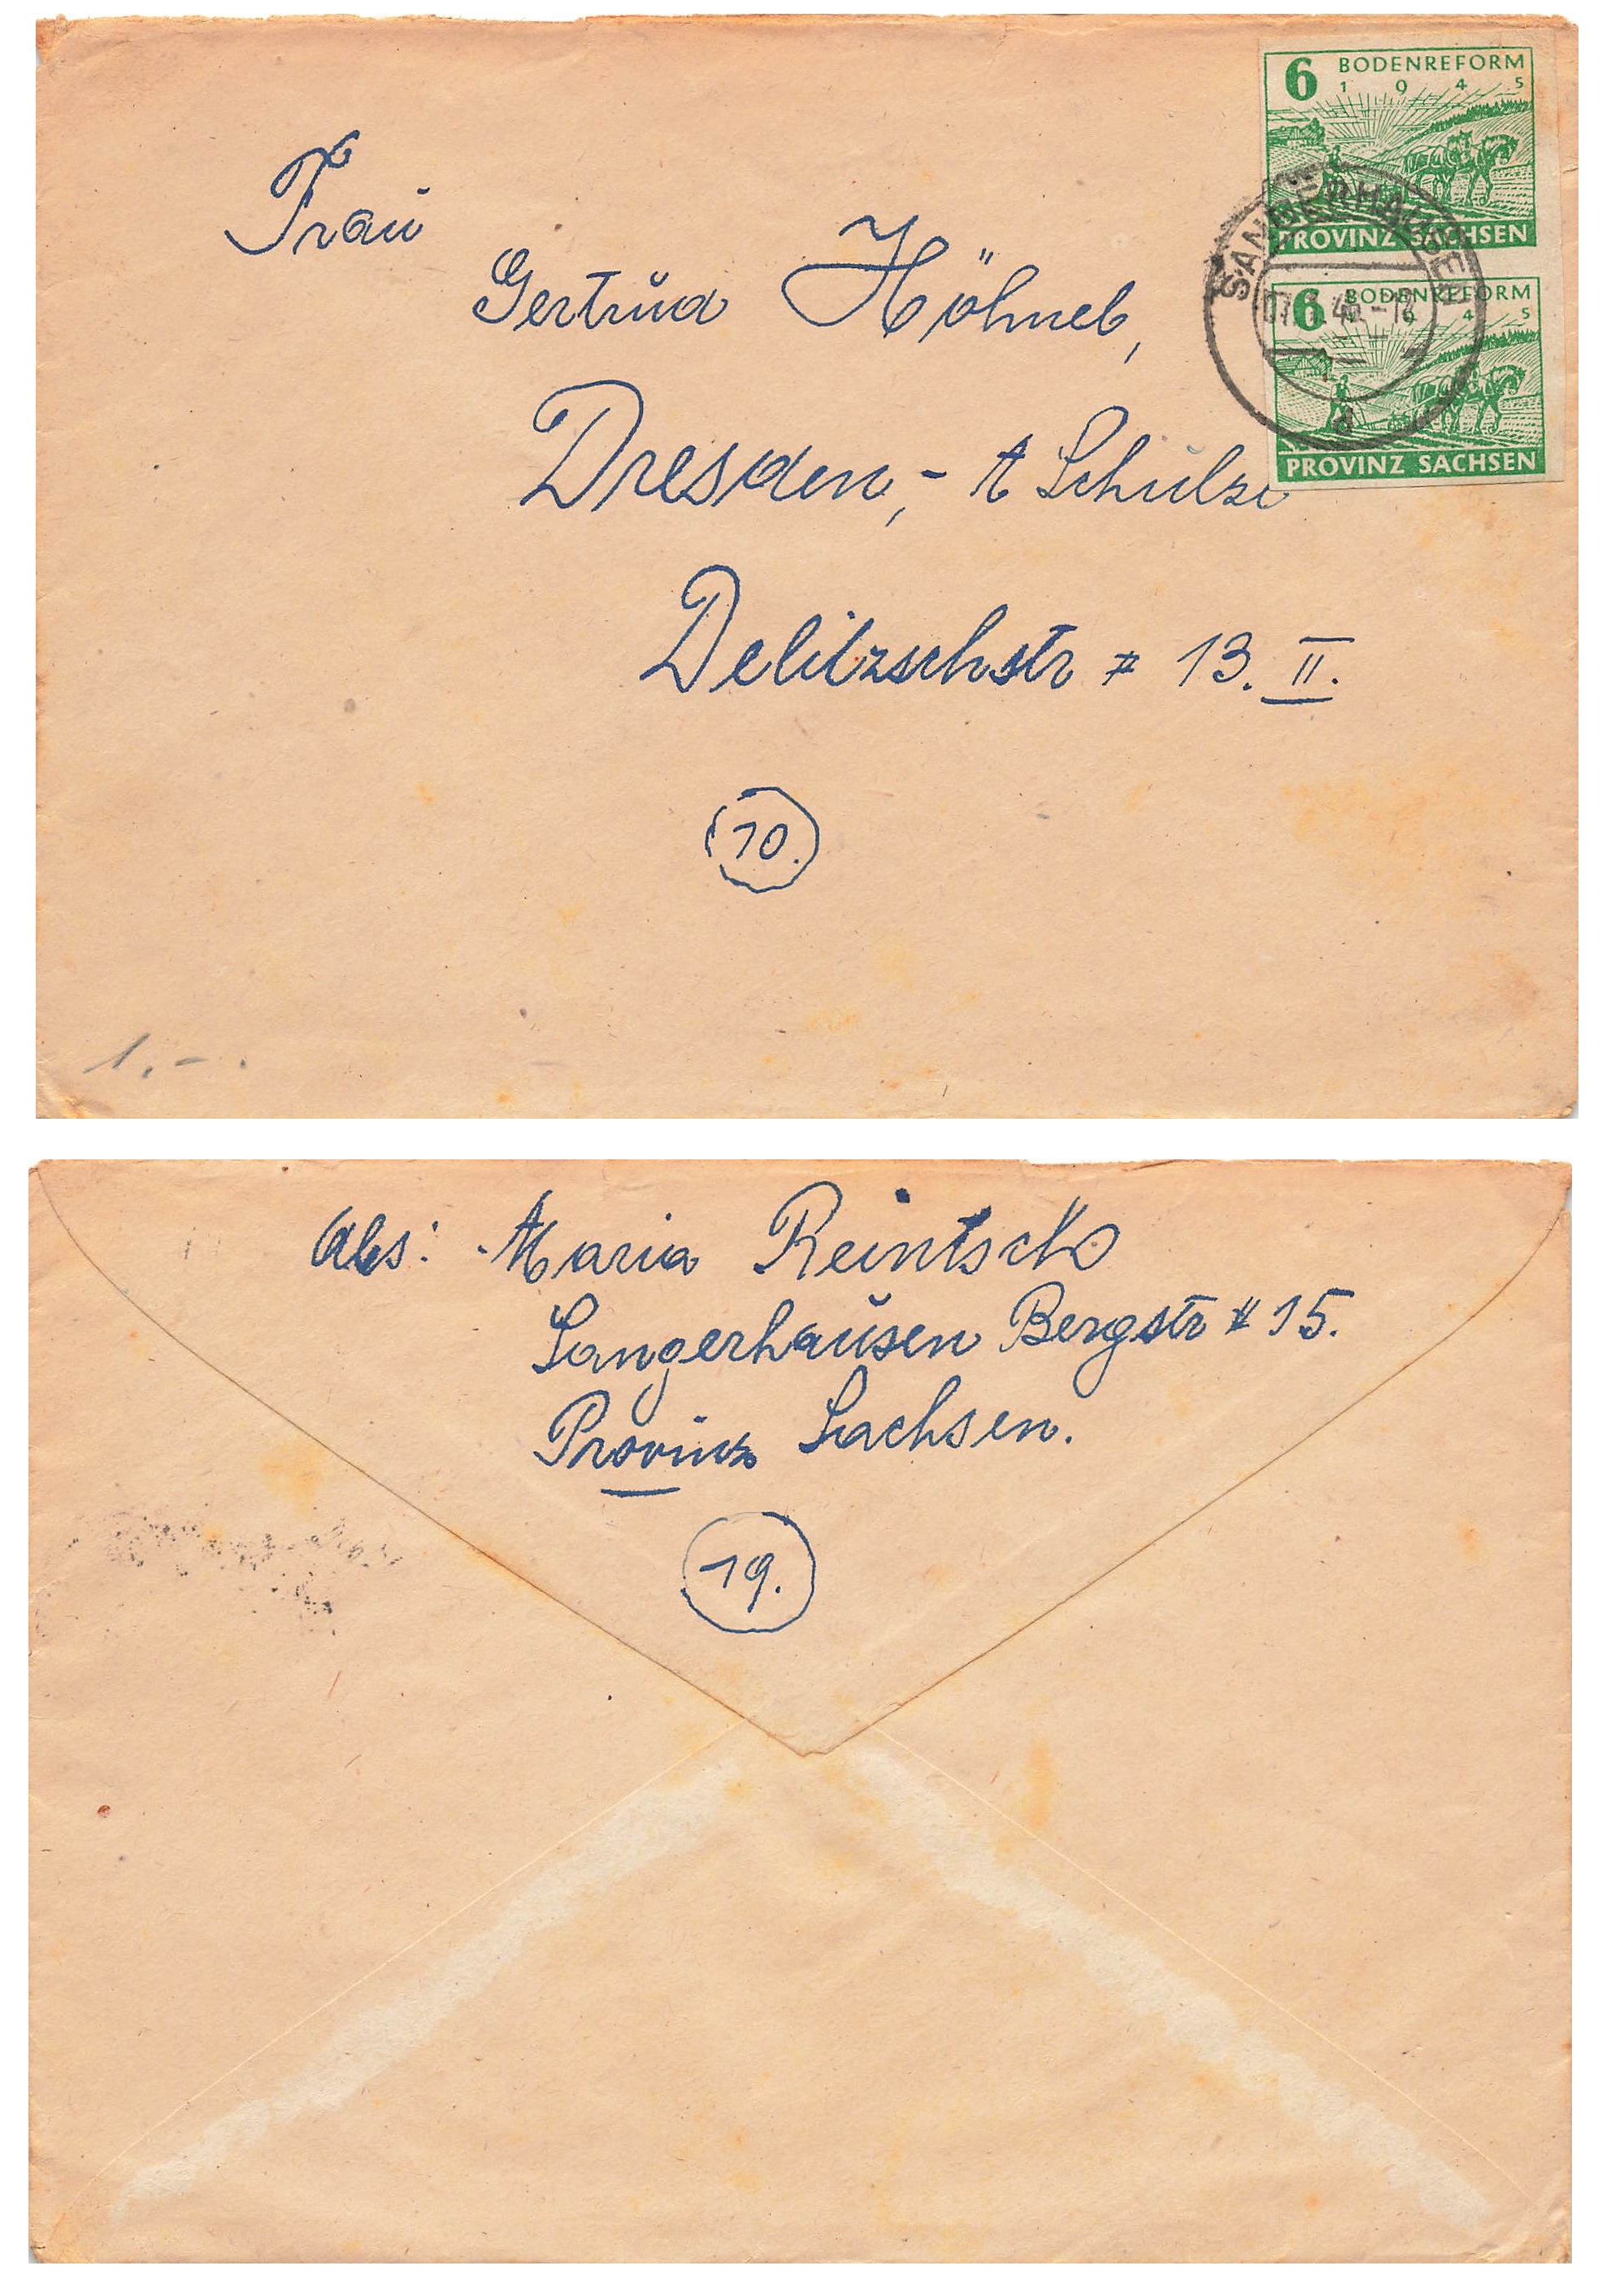 6 BODENREFORM
1 9 4 5
PROVINZ SACHSEN
6 BODENREFORM
4 5
PROVINZ SACHSEN
SANGERHAUSEN
a
Frau
Gertrud
Dresden, - A Schulze
Delitzschstr # 13. II.
10.
1.-
Abs: Maria Reintsch
Sangerhausen Bergstr # 15.
Provinz Sachsen.
19.